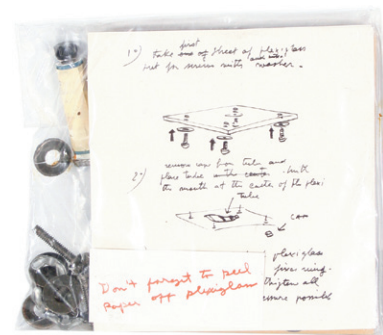 1º) first
take one of sheet of plexiglass
put four screws with washer.
2º) remove cap from tube and
place tube with
the mouth at the center of the plexi
tube
cap
plexiglass
ring.
tighten all
possible
Don't forget to peel
paper off plexiglass